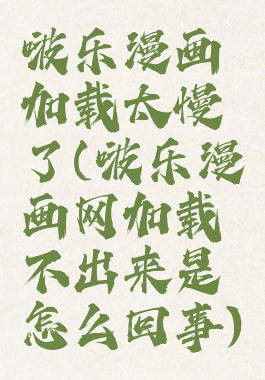 啵乐漫画
加载太慢
了(啵乐漫
画网加载
不出来是
怎么回事)